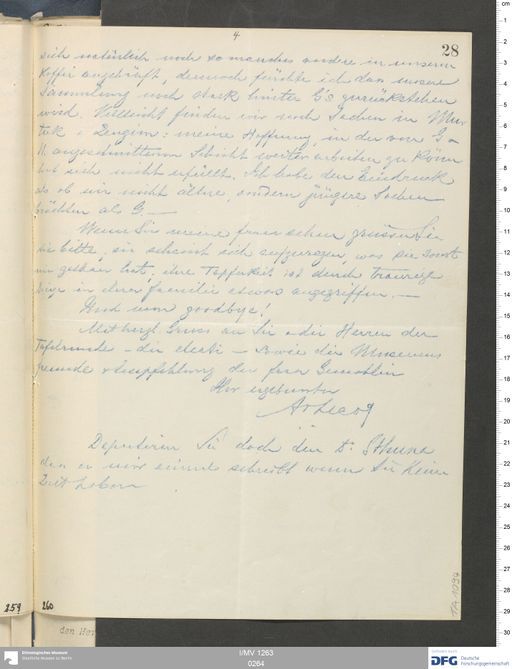 4
28
sich natürlich noch so manches andere in unseren
Koffer angehäuft, dennoch fürchte ich dass unsere
Sammlung noch stark hinter G's zurückstehen
wird. Vielleicht finden wir noch Sachen in Mur-
tuk + Zengim: meine Hoffnung, in der von G +
H. angeschnittenen Schicht weiter arbeiten zu können
hat sich nicht erfüllt. Ich habe den Eindruck
als ob wir nicht ältere, sondern jüngere Sachen
brächten als G. —
Wenn Sie meine Frau sehen grüssen Sie
sie bitte, sie scheint sich aufzuregen, was sie sonst
nie gethan hat; ihre Tapferkeit ist durch traurige
Dinge in ihrer Familie etwas angegriffen. —
Und nun goodbye!
Mit herzl. Gruss an Sie + die Herren der
Tafelrunde — die electi — sowie die Museums
freunde + Empfehlung der Frau Gemahlin
Ihr ergebenster
A v Lecoq
Deputieren Sie doch den Dr.
dass er mir einmal schreibt wenn Sie keine
Zeit haben
259
260
den Her
TA 1094
cm
1
2
3
4
5
6
7
8
9
10
11
12
13
14
15
16
17
18
19
20
21
22
23
24
25
26
27
28
29
30
Ethnologisches Museum
Staatliche Museen zu Berlin
I/MV 1263
0264
DFG Deutsche
Forschungsgemeinschaft